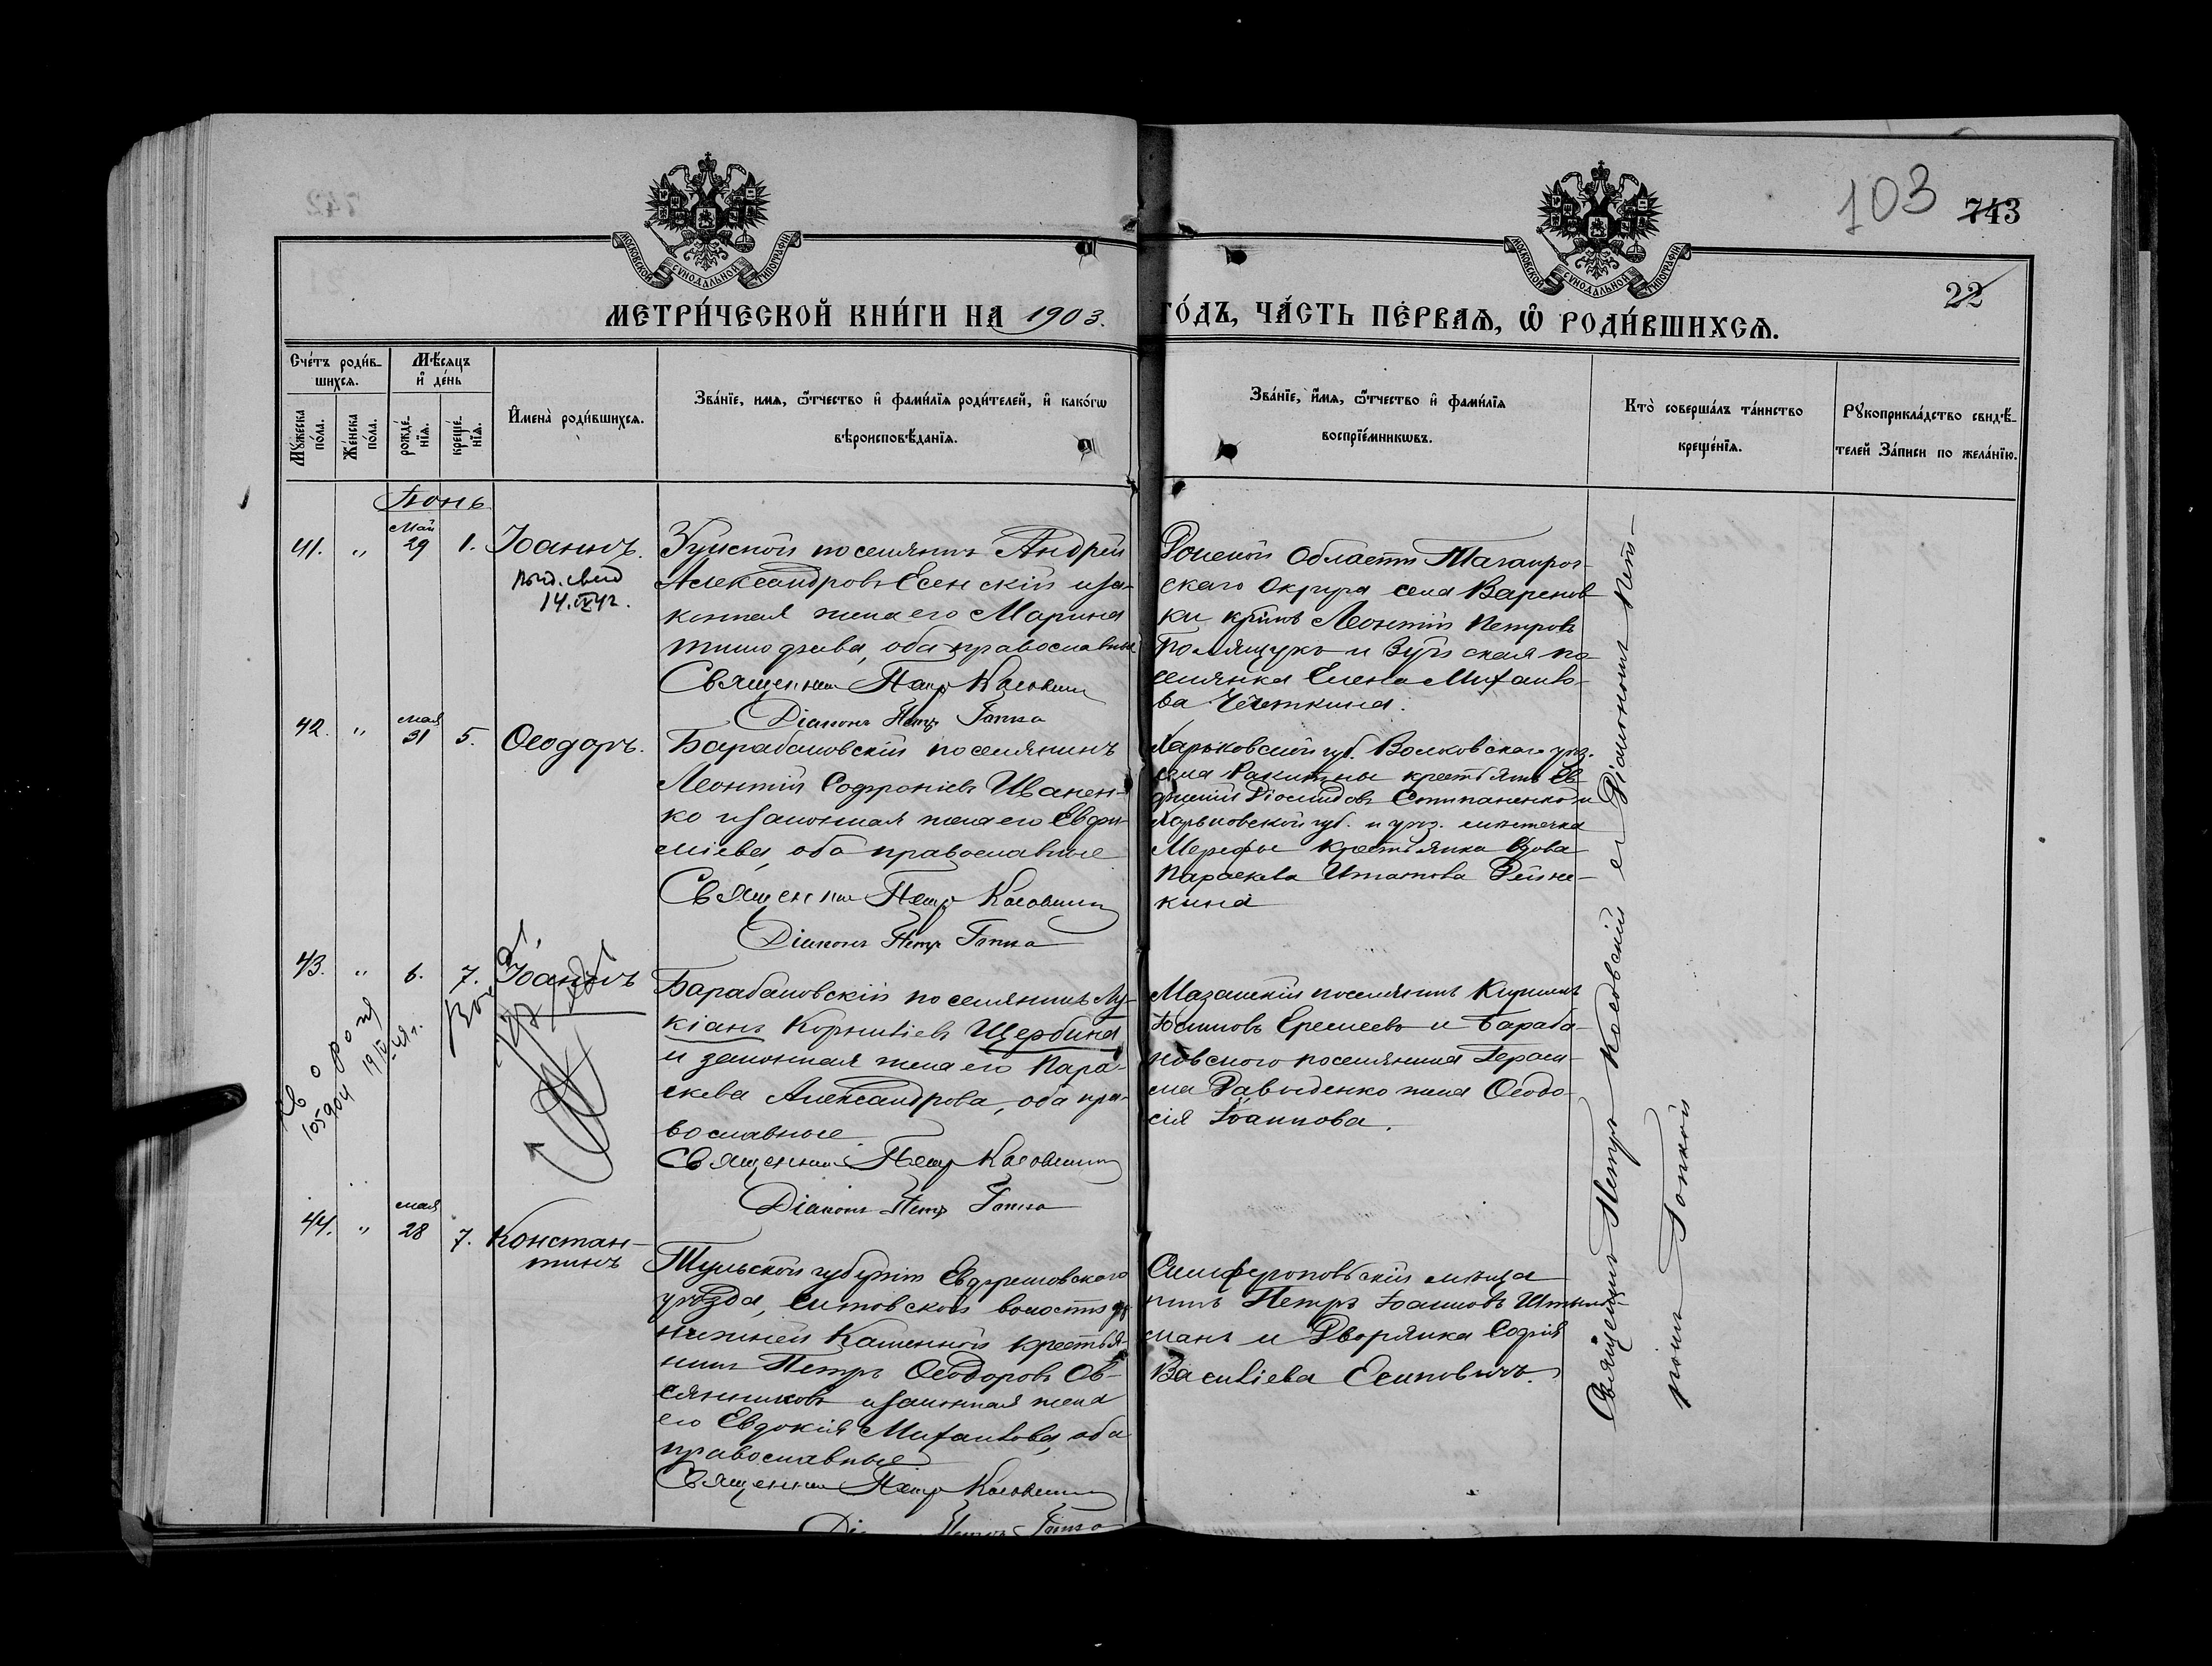 103
743
22
742
МОСКОВСКОЙ СѴНОДАЛЬНОЙ ТИПОГРАФІИ
МОСКОВСКОЙ СѴНОДАЛЬНОЙ ТИПОГРАФІИ
МЕТРИ́ЧЕСКОЙ КНИ́ГИ НА 1903. ГО́ДЪ, ЧА́СТЬ ПЕ́РВАѦ, Ѽ РОДИ́ВШИХСѦ.
Сче́тъ роди́в-
шихсѧ.
Мѣ́сѧцъ
и҆ де́нь
Мꙋ́жеска
по́ла.
Же́нска
по́ла.
рожде́-
нїѧ.
креще́-
нїѧ.
И҆мена̀ роди́вшихсѧ.
Зва́нїе, имѧ, ѻ҆́тчество и҆ фами́лїѧ роди́телей, и҆ како́гѡ
вѣроисповѣ́данїѧ.
Зва́нїе, и҆́мѧ, ѻ҆́тчество и҆ фами́лїѧ
воспрїе́мникѡвъ.
Кто̀ соверша́лъ та́инство
креще́нїѧ.
Рꙋкоприкла́дство свидѣ́-
телей За́писи по жела́нїю.
Іюнь
41. " Май 29 1. Іоаннъ.
14.IX 42.
Зуйской поселянинъ Андрей
Александровъ Есенскій и за-
конная жена его Марина
Тимофеева, оба православные
Священникъ Петръ Косовскій
Діаконъ Петръ Гапка
Донской Области Таганрог-
скаго округа села Варенов-
ки крестьянинъ Леонтій Петровъ
Полящукъ и Зуйская по-
селянка Елена Михаило-
ва Чечеткина.
42. " мая 31 5. Ѳеодоръ.
Барабановскій поселянинъ
Леонтій Софроніевъ Иванен-
ко и законная жена его Евфи-
міева, оба православные
Священникъ Петръ Косовскій
Діаконъ Петръ Гапка
Харьковской губ. Волковскаго уез.
села Ракитны крестьянинъ Ев-
фимій Діомидовъ Степаненко и
Харьковской губ. и уез. местечка
Мерефы крестьянка вдова
Параскева Игнатова
кина
43. " 6. 7. Іоаннъ
105904 19/IV-49 г.
Барабановскій поселянинъ Лу-
кіанъ Корниліевъ Щербина
и законная жена его Пара-
скева Александрова, оба пра-
вославные.
Священникъ Петръ Косовскій
Діаконъ Петръ Гапка
Мазанскій поселянинъ Кириллъ
Іоанновъ Еремеевъ и Бараба-
новскаго поселянина Гераси-
ма Давыденко жена Ѳеодо-
сія Іоаннова.
44. " мая 28 7. Констан-
тинъ
Тульской губерніи Ефремовскаго
уѣзда, Ситовской волости др
нижней Каменной крестья-
нинъ Петръ Ѳеодоровъ Ов-
сянниковъ и законная жена
его Евдокія Михаилова, оба
православные
Священникъ Петръ Косовскій
Діаконъ Петръ Гапка
Симферопольскій мѣща-
нинъ Петръ Іоанновъ
манъ и Дворянка Софія
Василіева Есиповичъ.
Священникъ Петръ Косовскій с Діакономъ Пет-
ромъ Гапкой